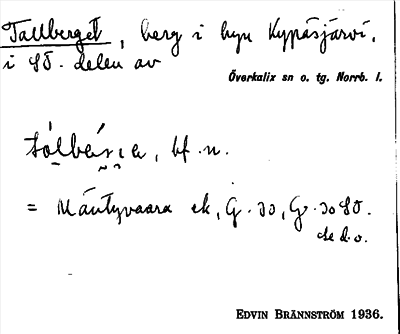 Tallberget, berg i byn Kypäsjärvi,
i SO. delen av
Överkalix sn o. tg. Norrb. l.
bf. n.
= Mäntyvaara ek, G. 30, G. 30 SO.
se d. o.
EDVIN BRÄNNSTRÖM 1936.